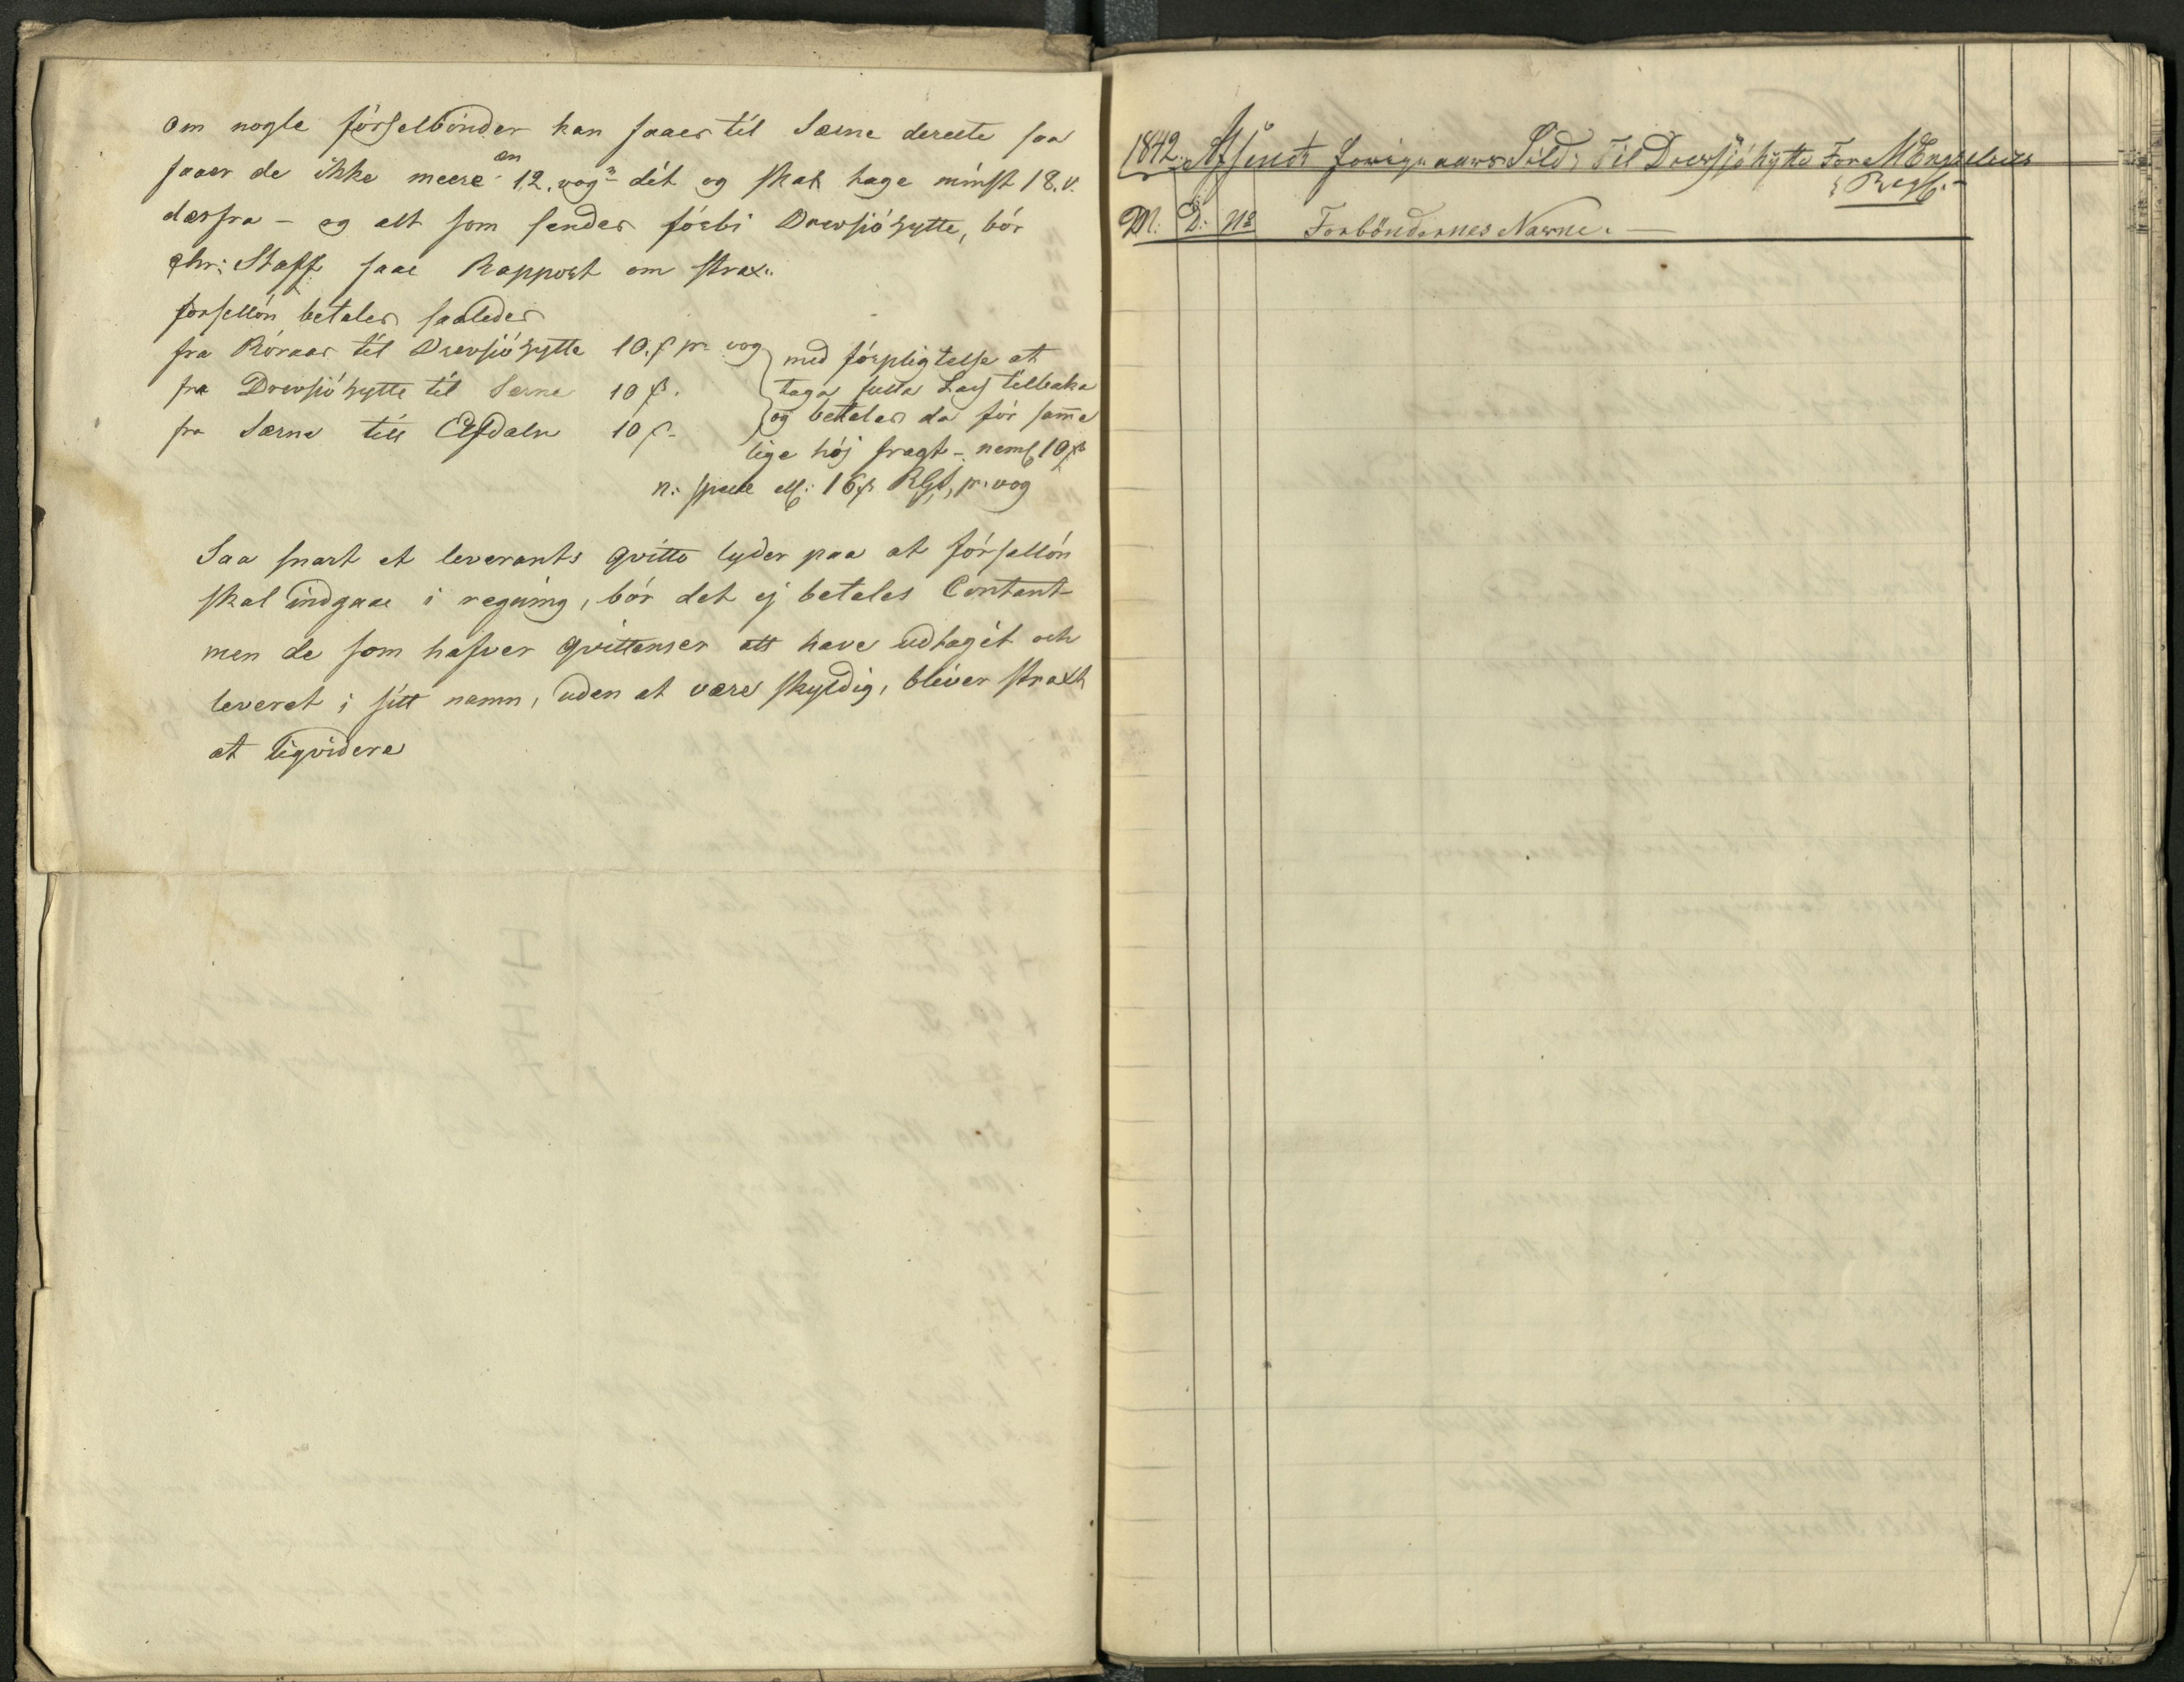 om nogle förselbönder kan faaes til Særne dereete saa
faaer de ikke meere än 12. vog.r dit og skal tage minst 18. v.
derfra - og alt som sendes förbi Drevsjöhytte, bör
Chr: Staff faae Rapport om strax.
forsellön betales saaledes
fra Röraas til Drevsjöhytte 10 ß pr vog
fra Drevsjöhytte til Særne 10 ß.
fra Særna till Elfdaln 10 ß.
med förpligtelse at
taga fulla Lass tilbaka
og betales da för samme
lige höj fragt - neml 10 ß
n: specie ell: 16 ß RGs, pr. vog
Saa snart et leverants qvitto lyder paa at försellön
skal indgaae i regning, bör det ej betales Contant
men de som hafver qvittenser att have udtagit och
leveret i sitt namn, uden at være skyldig, bliver straxt
at liqvidera
1842. Afsendt forrige aars Sild, Til Drevsjöhytte For
M: D: No Forböndernes Navne.